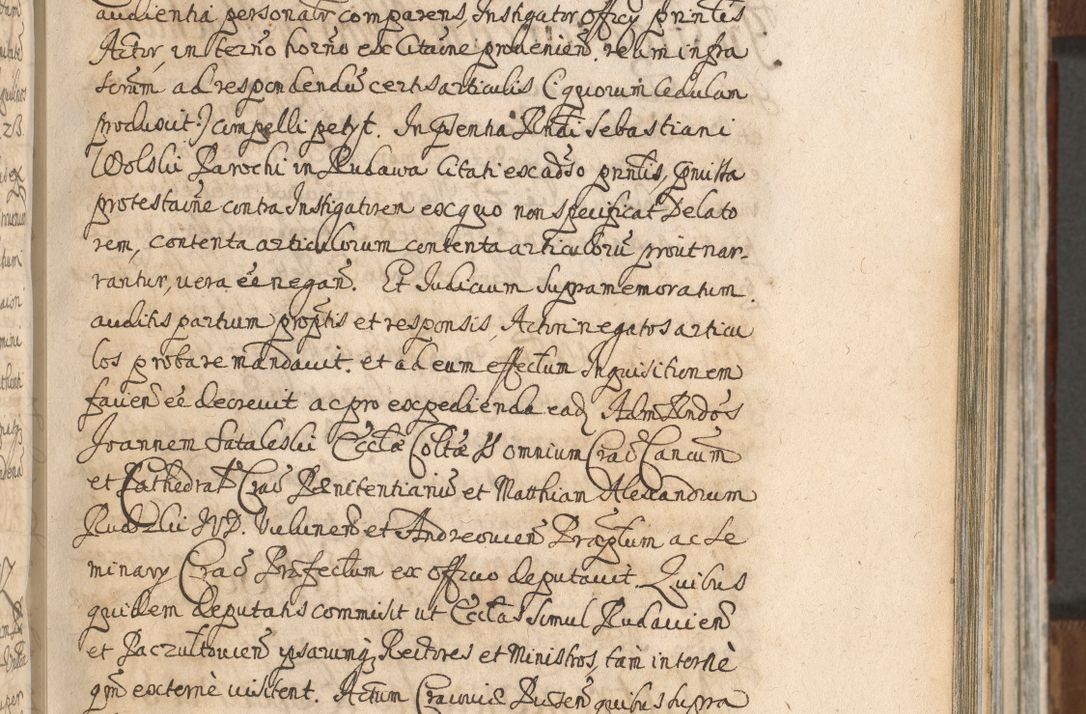 audientia personalr comparens, Instigator officy prinţis
Actor, in term̃o horñо ex citaõne provenien̄. relim infra
scrum ad respondendũ certis articulis (quorum cedulam
produxit:) compelli petyt. In p̃sentia Rñdi Sebastiani
Wolski Parochi in Rudawa Citati ex adṽso prñtis, p̃missa
protestaõne contra Instigatorem ex quo non specificat Delato
rem, contenta articulorum contenta articulorũ prout nar-
rantur, vera eẽ negan̄. Et Iudicium supramemoratum.
auditis partium prop̃tis et responsis, Actori negatos articu
los probare mandavit. et ad eum effectum Inquisitionem
facien̄ eẽ decrevit ac pro expedienda ead. Adm Rñdos
Joannem Sataleski Ecclæ Coltæ SS omnium Crac̃ Cancum
et Cathedral Crac̃ Pænitentiariũ et Matthiam Alexandrum
Rudzki IVD. Vielunen̄ et Andreovien̄ Præptum ac Se
minary Crac̃ Præfectum ex officio deputavit. Quibus
quidem deputatis commisit ut Eccl̃as simul Rudavien̄
et Paczultovien̄ ipsarumq; Rectores et Ministros, tam internè
qm̃ externè visitent. Actum Cracoviæ Præsen̄ quibus supra